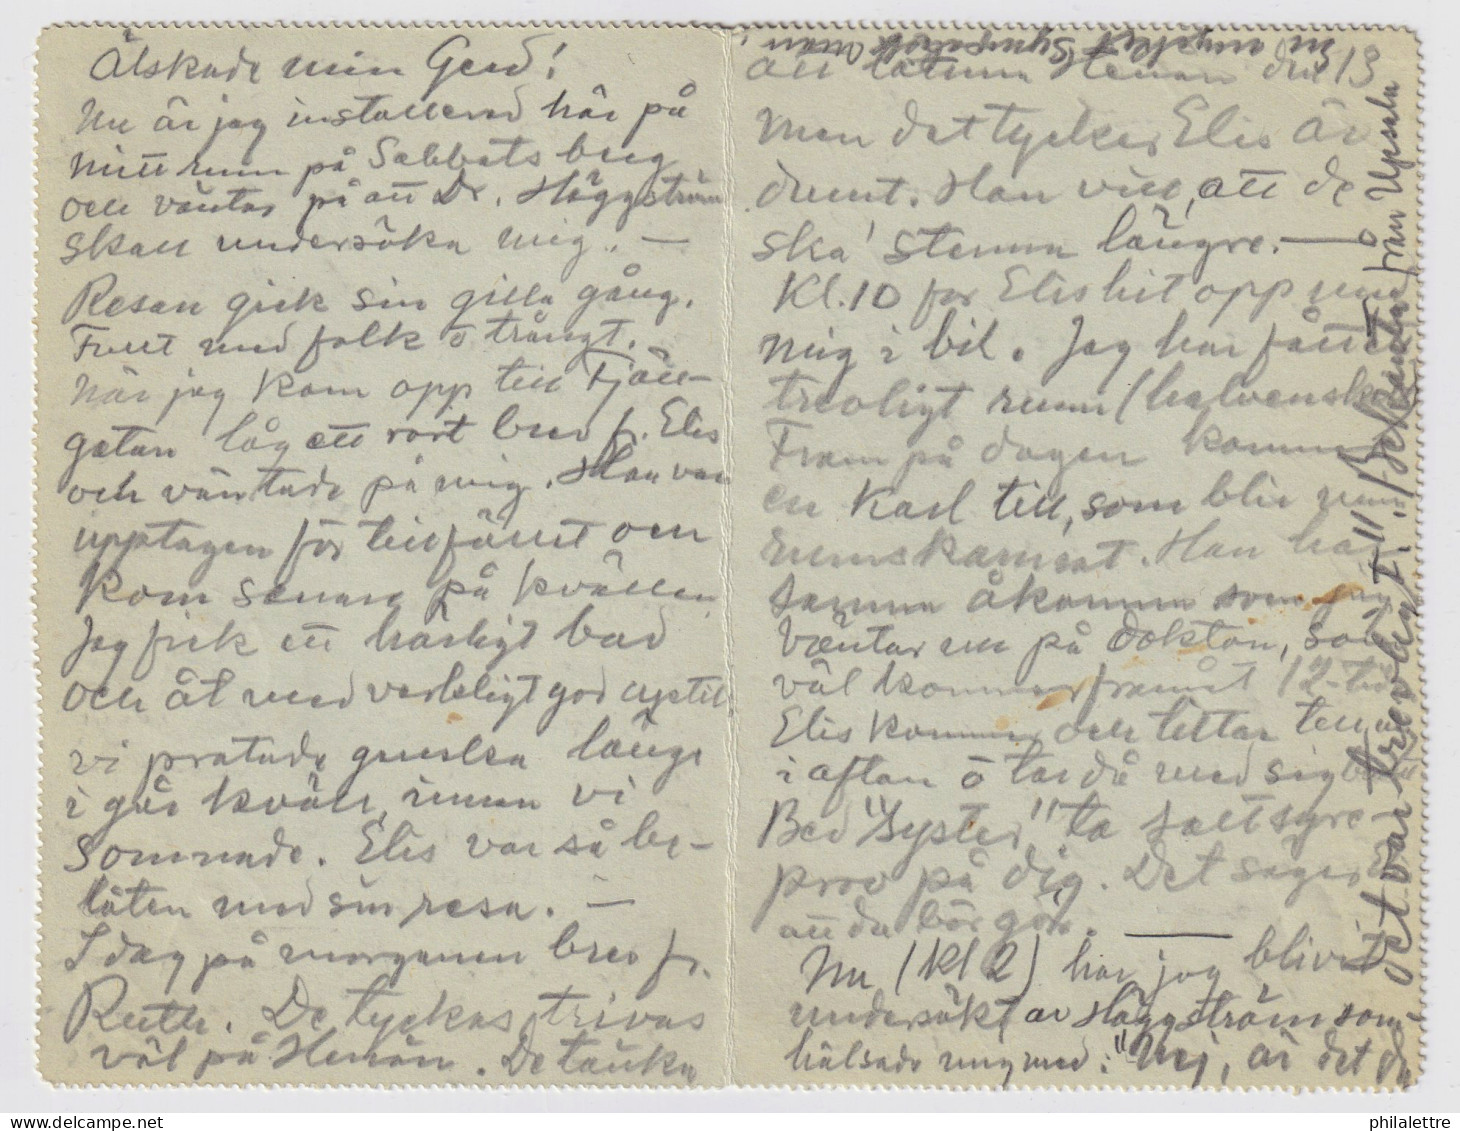 Älskade min Gerd!
Nu är jag installerad här på
mitt rum på Sabbatsberg
och väntar på att Dr. Häggström
skall undersöka mig. —
Resan gick sin gilla gång.
Fullt med folk o trångt.
När jag kom opp till Fjäll-
gatan låg ett rart brev fr. Elis
och väntade på mig. Han var
upptagen för tillfället och
kom senare på kvällen
Jag fick ett härligt bad
och åt med verkligt god aptit
vi pratade ganska länge
i går kväll innan vi
somnade. Elis var så be-
låten med sin resa. —
I dag på morgonen brev fr.
Ruth. De tyckas trivas
väl på Henån. De tänka
att lämna Henån den 13
Men det tycker Elis är
dumt. Han vill, att de
ska' stanna längre. —
Kl. 10 for Elis hit opp med
mig i bil. Jag har fått ett
trevligt rum (halvenskilt
Fram på dagen kommer
en karl till, som blir min
rumskamrat. Han har
samma åkomma som jag
Väntar nu på doktorn, som
väl kommer framåt 12-tiden
Elis kommer och tittar till mig
i aftan o tar då med sig
Bed "Syster" ta saltsyre-
prov på dig. Det säger E
att du bör göra. —
Nu (kl 2) har jag blivit
undersökt av Häggström som
hälsade mig med: "Nej, är det du
det var trevligt!" (Bekanta från Upsala
en mycket sympatisk man!
philalettre.com